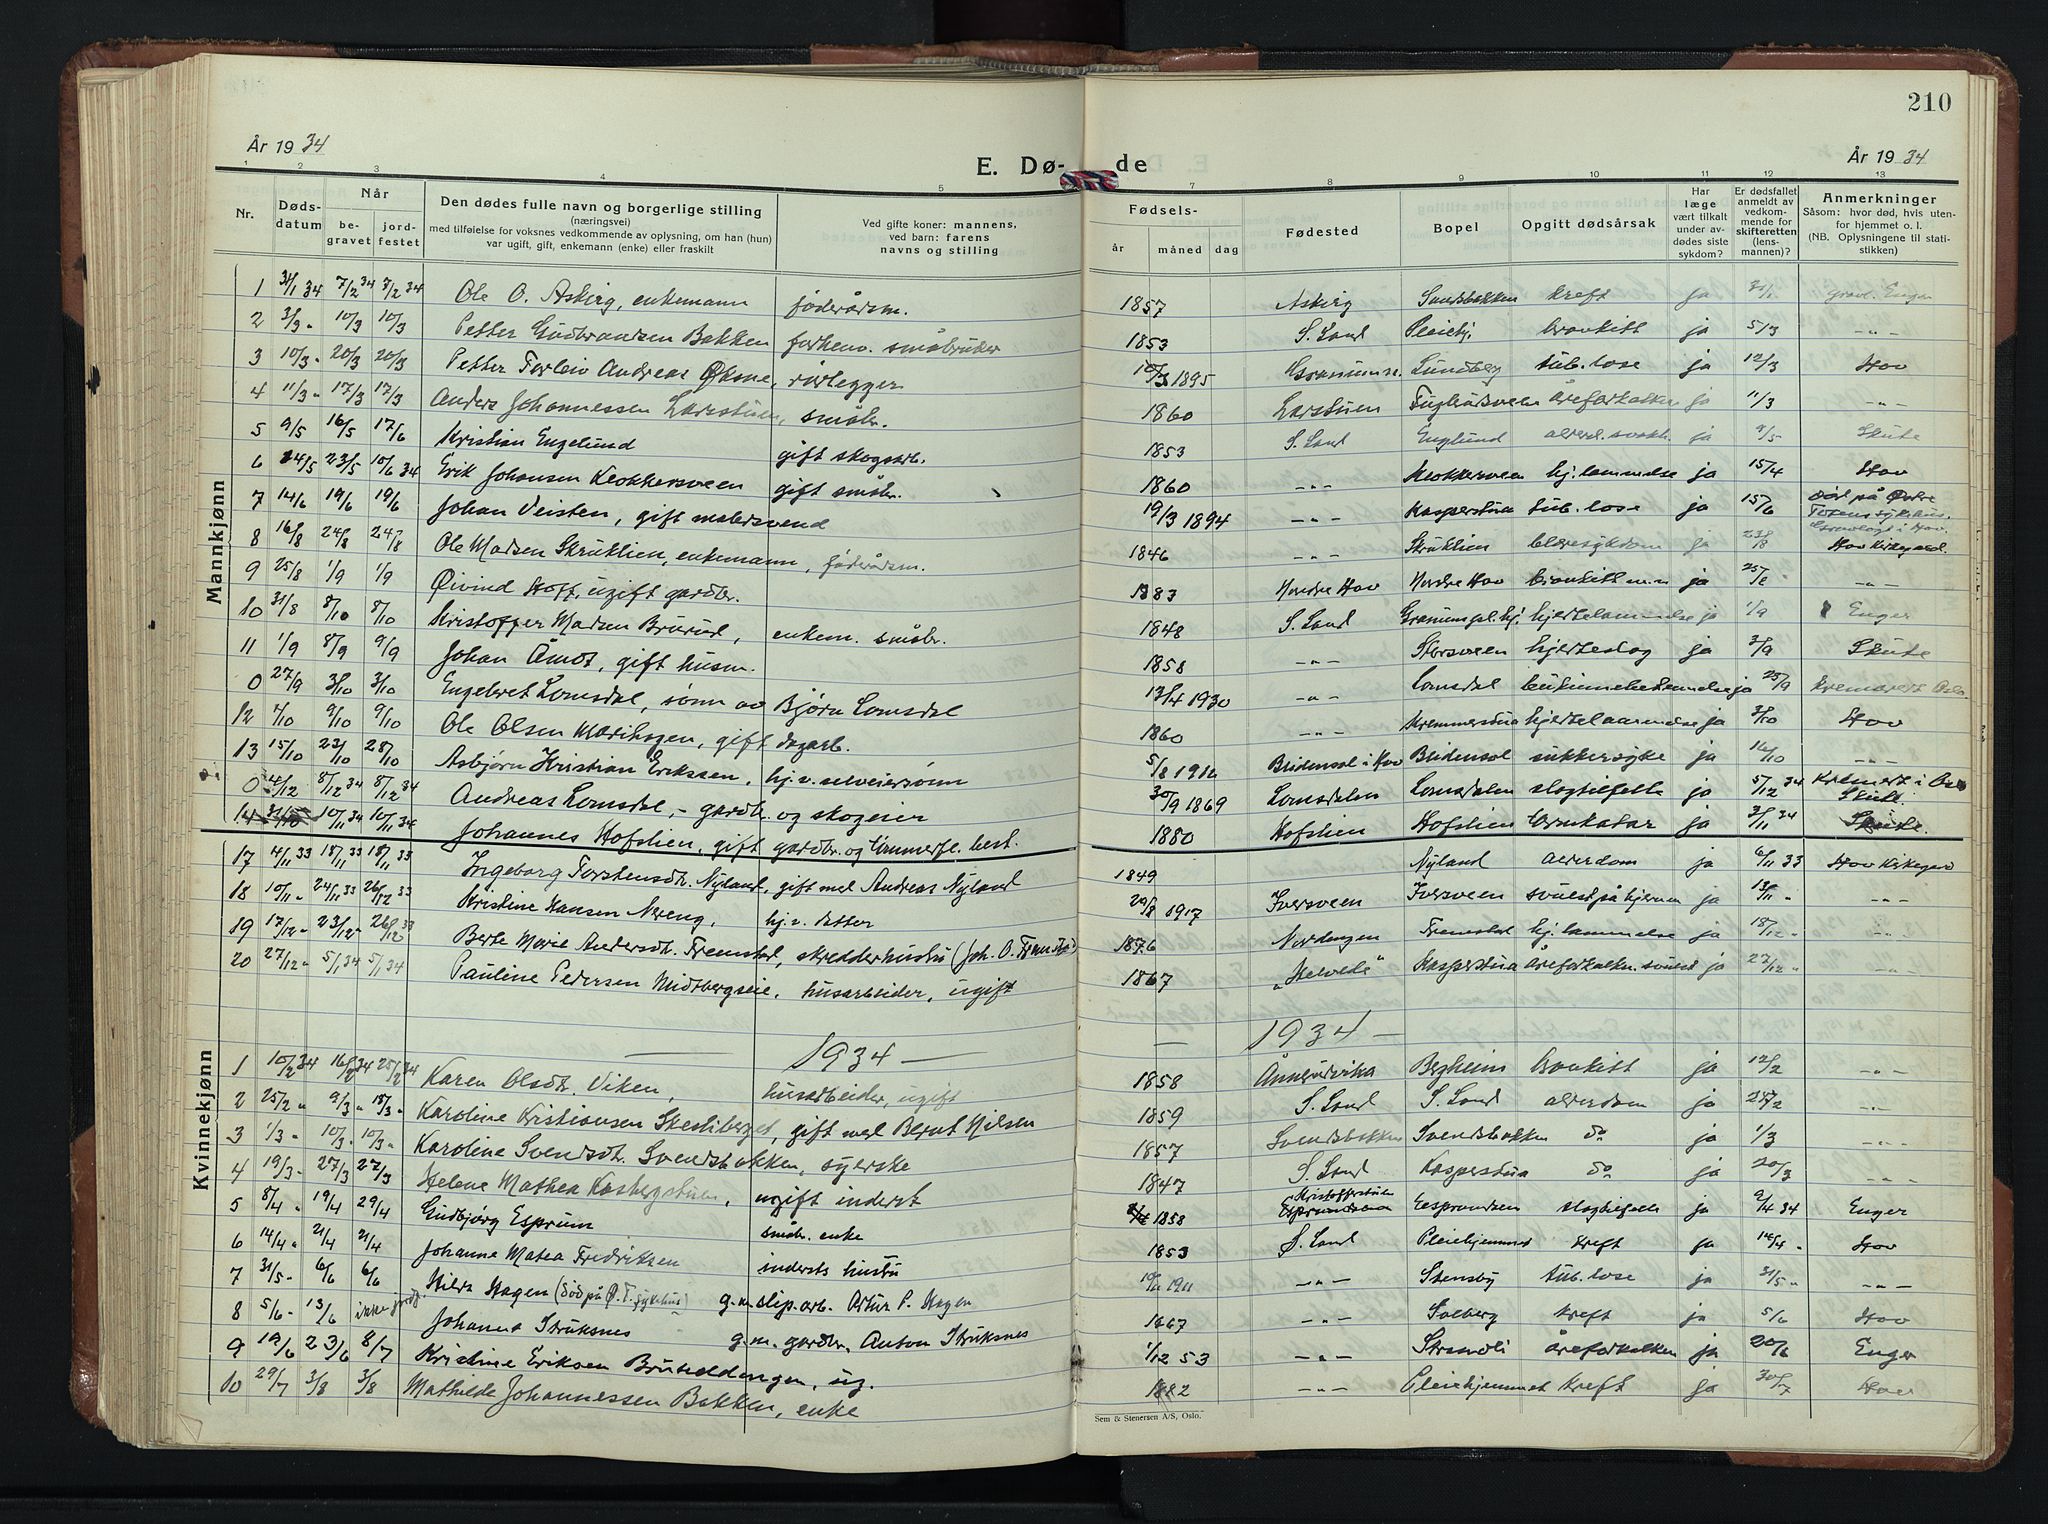 210
År 1934
År 1934
E. Dø- de
1 2 3 4 5 7 8 9 10 11 12 13
Nr. Døds-datum Når be-gravet jord-festet Den dødes fulle navn og borgerlige stilling (næringsvei) med tilføielse for voksnes vedkommende av oplysning, om han (hun) var ugift, gift, enkemann (enke) eller fraskilt Ved gifte koner: mannens, ved barn: farens navns og stilling Fødsels- år måned dag Fødested Bopel Opgitt dødsårsak Har læge vært tilkalt under av-dødes siste sykdom? Er dødsfallet anmeldt av vedkom-mende for skifteretten (lens-mannen)? Anmerkninger Såsom: hvor død, hvis uten-for hjemmet o. l. (NB. Oplysningene til stati-stikken)
Mannkjønn
1 31/1 34 7/2 34 8/2 34 Ole O. Askirg, enkemann føderådsm. 1857 Askirg Sandsbakken kreft ja 31/1 gravl. Enger
2 3/3 " 10/3 10/3 Petter Gudbrandsen Bakken forhenv. småbruker 1853 S. Land Pleiehj. bronkitt ja 5/3 - " -
3 10/3 " 20/3 20/3 Petter Torleiv Andreas Øksne, rørlegger 1895 Lundberg tub. lose ja 12/3 Hov
4 11/3 " 17/3 17/3 Anders Johannessen Larsstuen, småbr. 1860 Larstuen åreforkalkn ja 11/3 - " -
5 9/5 16/5 17/6 Kristian Engelund gift skogsarb. 1853 S. Land Englund alderd. svakh. ja 9/5 Skute
6 14/5 23/5 10/6 34 Erik Johansen Klokkersveen gift småbr. 1860 - " - Klokkersveen hj. lammelse ja 15/4 Hov
7 14/6 19/6 19/6 Johan Veisten, gift malersvend 19/3 1894 - " - Kasperstua tub. lose ja 15/6 død på Østre Totens sykehus. Gravlagt i Hov
8 16/8 24/8 24/8 Ole Madsen Skruklien, enkemann, føderådsm. 1846 - " - Skruklien blæresykdom ja 23/8 Hov Kirkegard.
9 25/8 1/9 1/9 Øivind Hoff, ugift gardbr. 1883 Nordre Hov Nordre Hov bronkitt m.m ja 25/8 - " -
10 31/8 8/10 8/10 Kristoffer Madsen Brurud, enkem. småbr. 1848 S. Land Granumspl.hj. hjertelammelse ja 1/9 Enger
11 1/9 8/9 9/9 Johan Åmot, gift husm. 1858 - " - Storsveen hjerteslag ja 3/9 Skute
0 27/9 3/10 3/10 Engebret Lomsdal, sønn av Bjørn Lomsdal 13/4 1930 - " - Lomsdal bukhinnebetennelse ja 25/9 kremert Oslo
12 4/10 9/10 9/10 Ole Olsen Mærihagen, gift dagarb. 1860 - " - Kremmerstua hjertelammelse ja 3/10 Hov
13 15/10 23/10 28/10 Asbjørn Kristian Erikssen, hj. v. selveiersønn 5/8 1916 Blidensol i Hov Blidensol sukkersyke ja 16/10 - " -
0 4/12 8/12 34 8/12 34 Andreas Lomsdal, - gardbr. og skogeier 30/9 1869 Lomsdalen Lomsdalen slagtilfelle ja 5/12 34 Kremert i Oslo Skute.
14 31/10 10/11 34 10/11 34 Johannes Hofslien, gift gardbr. og tømmerfl. best. 1880 Hofslien Hofslien bronkatar ja 3/11 34 Skute.
Kvinnekjønn
17 4/11 33 18/11 33 18/11 33 Ingeborg Torstensdt. Nyland, gift med Andreas Nyland 1849 Nyland alderdom ja 6/11 33 Hov Kirkegard
18 10/11 " 24/11 33 26/12 33 Kristine Hansen Nereng, hj. v. datter 29/8 1917 Iversveen Iversveen svulst på hjernen ja 13/11 " - " -
19 17/12 " 23/12 " 26/12 33 Berte Marie Andersdt. Fremstad, skredderhustru (Joh. O. Fremstad) 1876 Nordengen Fremstad hj. lammelse ja 18/12 " - " -
20 27/12 " 5/1 34 5/1 34 Pauline Pedersen Midtbergseie, husarbeider, ugift 1867 „Helvete" Kasperstua åreforkalkn. svulst ja 27/12 " - " -
— 1934 — — 1934 —
1 10/2 34 16/2 34 25/2 34 Karen Olsdt. Viken, husarbeider, ugift 1858 Annerudvika Bergheim bronkitt ja 12/2 - " -
2 25/2 " 9/3 " 18/3 " Karoline Kristiansen Skestiberget, gift med Bernt Nilsen 1859 S. Land S. Land alderdom ja 27/2 - " -
3 1/3 - 10/3 - 10/3 - Karoline Svendsdt. Svendsbakken, syerske 1857 Svendsbakken Svendsbakken do ja 1/3 - " -
4 19/3 - 27/3 27/3 Helene Mathea Kasbergstuen, ugift inderst 1847 S. Land Kasperstua do ja 20/3 - " -
5 8/4 - 19/4 29/4 Gudbjørg Esprum småbr. enke 1858 Kristofferstuen Esprundsen slagtilfelle ja 9/4 34 Enger
6 14/4 - 21/4 21/4 Johanne Matea Fredriksen inderts hustru 1853 S. Land Pleiehjemmet kreft ja 14/4 - Hov
7 31/5 - 6/6 6/6 Hilda Hagen (død på Ø. T. sykehus) g. m. slip. arb. Artur P. Hagen 1911 - " - Stensby tub. lose ja 31/5 " - " -
8 5/6 - 13/6 ikke jordf. Johanna Struksnes g. m. gardbr. Anton Struksnes 1867 - " - Solberg kreft ja 5/6 Hov
9 19/6 23/6 8/7 Kristine Eriksen Bruseddengen, ug. 1/12 53 - " - Strandli åreforkalken ja 20/6 Enger
10 29/7 3/8 3/8 Mathilde Johannessen Bakken, enke 1882 - " - Pleiehjemmet kreft ja 30/7 Hov
Sem & Stenersen A/S, Oslo.